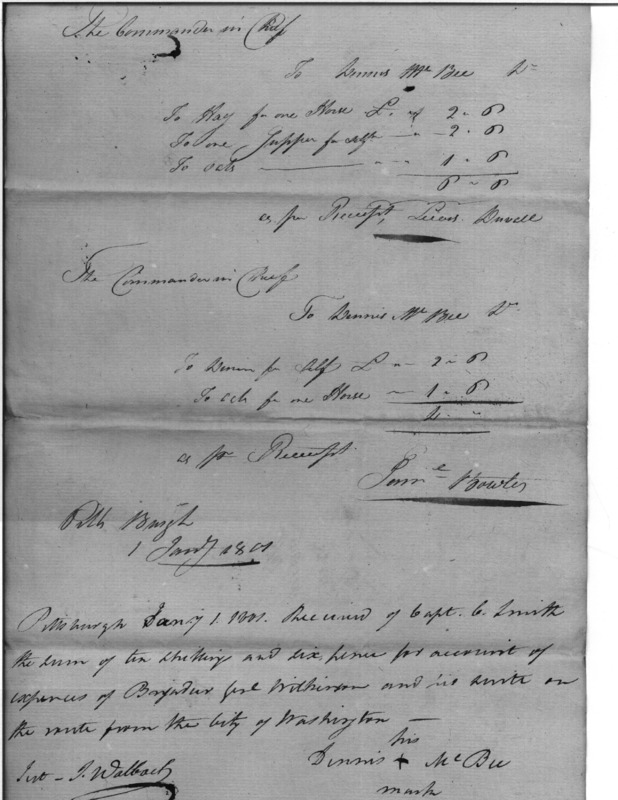 The Commander in Chief
To Dennis McBee Dr
To Hay for one Horse £. " 2 " 6
To one Supper for self " 2 " 6
To oats " " 1 " 6
6 " 6
as per Receipt, Duvall
The Commander in Chief
To Dennis McBee Dr
To for self £ " 2 " 6
To oats for one Horse " 1 " 6
4 "
as per Receipt
Saml. Fowler
Pitts Burgh
1 Jany 1801
Pittsburgh Jany 1. 1801. Received of Capt. C. Smith
the sum of ten shillings and six pence for account of
expences of Brigadier Genl Wilkinson and his suite on
the route from the City of Washington —
his
Dennis + McBee
mark
Test - J. Walbach